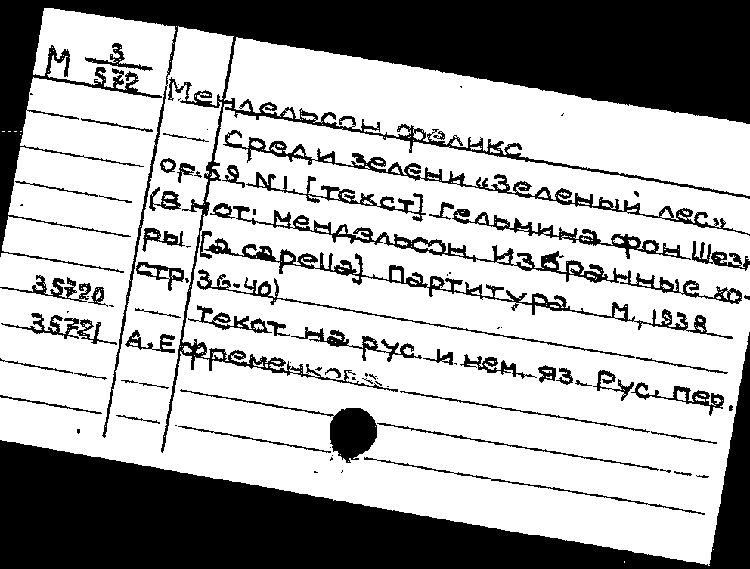 М 3/572
Мендельсон, Феликс.
Среди зелени «Зеленый лес»
op. 59, N 1. [текст] Гельмина фон Шези
(В нот: Мендельсон. Избранные хо-
ры [a capella]. Партитура. М., 1938
стр. 36-40)
35720
Текст на рус. и нем. яз. Рус. пер.
35721
А. Ефременкова